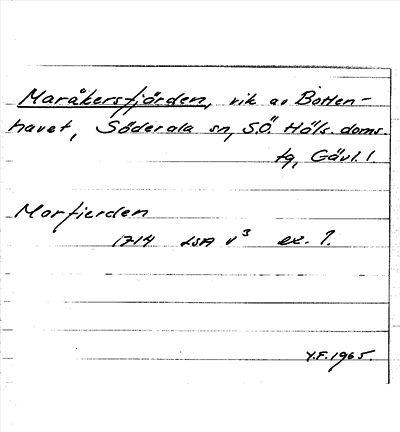 Maråkersfjärden, vik av Botten-
havet, Söderala sn, S.Ö. Häls. doms.
tg, Gävl. l.
Morfierden
1714 LSA V³ ex. 1.
Y.F. 1965.